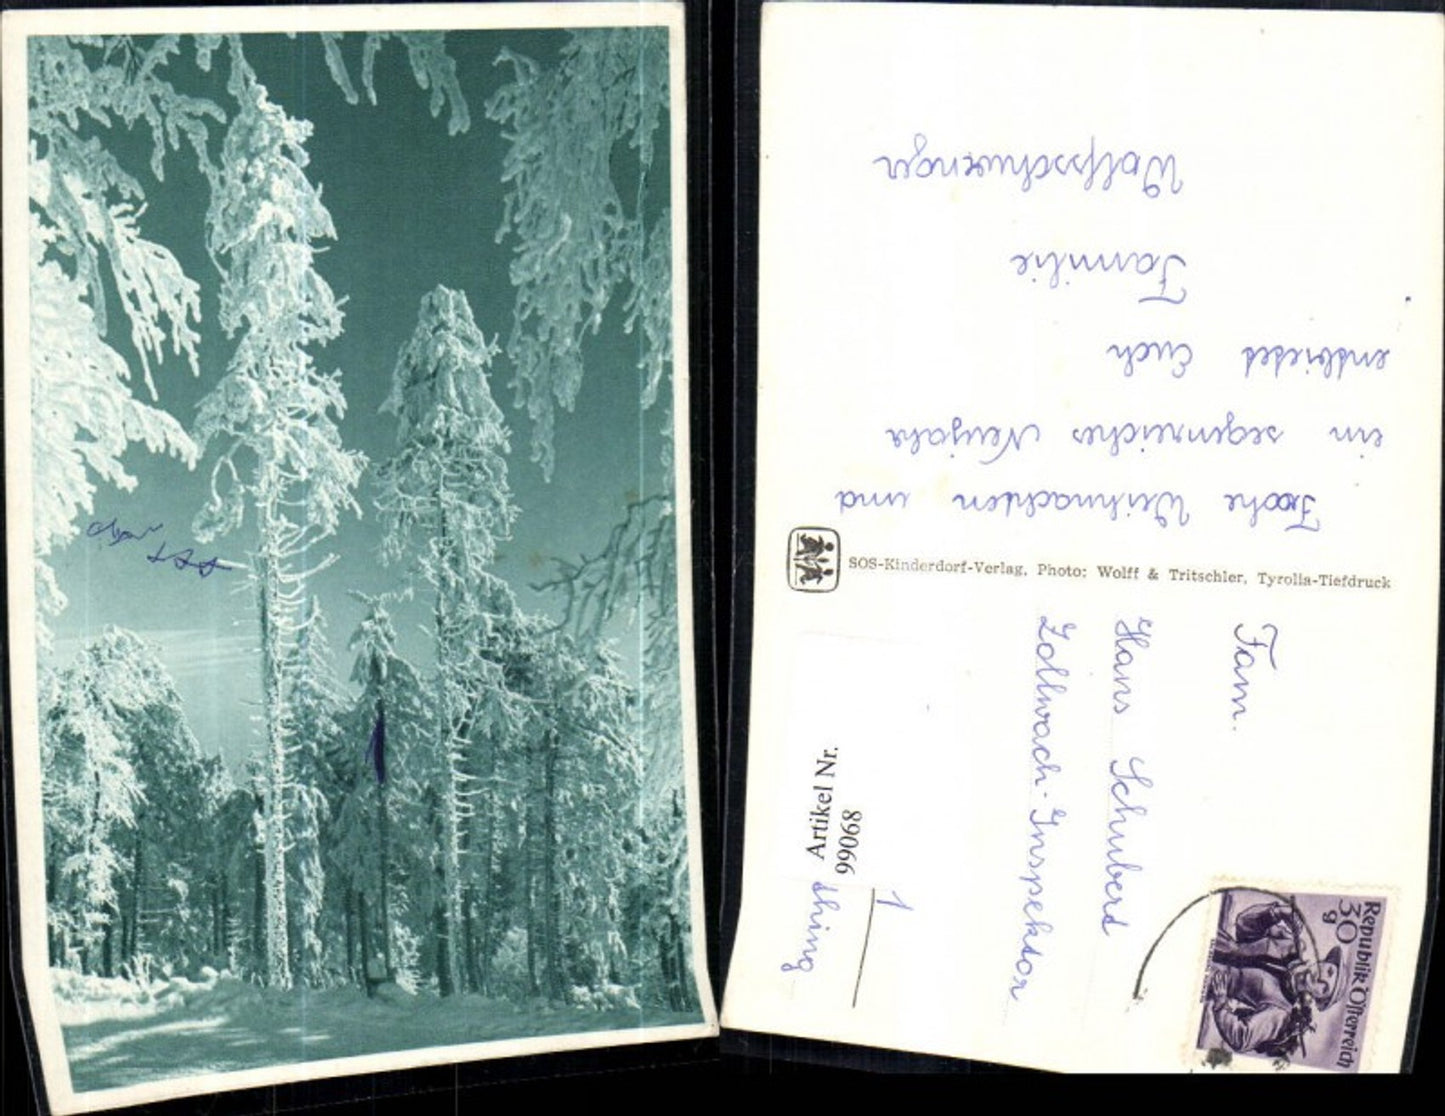 Frohe Weihnachten und
ein segenreiches Neujahr
entbietet Euch
Familie
Wolfsschwenger
SOS-Kinderdorf-Verlag, Photo: Wolff & Tritschler, Tyrolia-Tiefdruck
Fam.
Hans Schubert
Zollwach-Inspektor
1
Artikel Nr.
99068
Republik Österreich
30
g